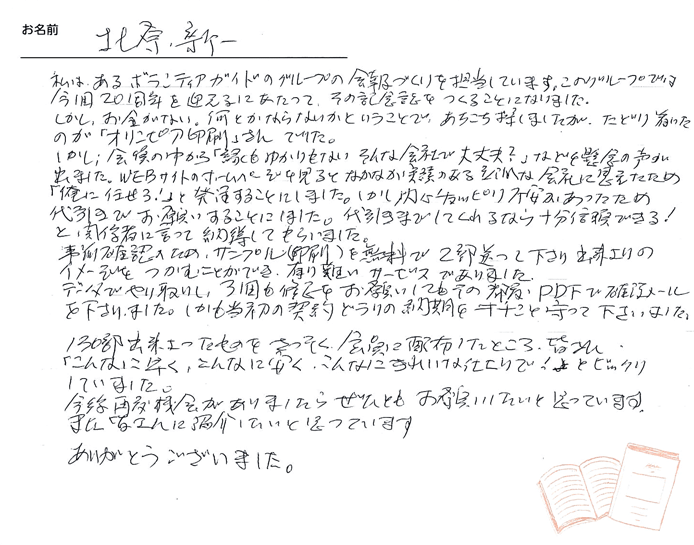 お名前 北原 新一
私は、あるボランティアガイドのグループの会報づくりを担当しています。このグループでは
今回20周年を迎えるにあたって、その記念誌をつくることになりました。
しかし、お金がない。何とかならないかということで、あちこち探しましたが、たどり着いた
のが「オリンピア印刷」さんでした。
しかし、会員の中から「縁もゆかりもないそんな会社で大丈夫?」などと懸念の声が
出ました。WEBサイトのホームページを見るとなかなか実績のある会社に思えたため
「俺に任せろ!」と発注することにしました。しかし内心チョッピリ不安があったため
代引きでお願いすることにしました。代引きまでしてくれるなら十分信頼できる!
と関係者に言って納得してもらいました。
事前確認のため、サンプル(印刷)を無料で2部送って下さり出来上りの
イメージをつかむことができ、有り難いサービスでありました。
データでやり取りし、3回も修正をお願いしてもその都度、PDFで確認メール
を下さいました。しかも当初の契約どうりの納期をキチンと守って下さいました。
130部出来上ったものをさっそく会員に配布したところ、皆さん
「こんなに早く、こんなに安く、こんなにきれいな仕上りで!」とビックリ
していました。
今後再度機会がありましたらぜひともお願いしたいと思っています。
また皆さんに紹介したいと思っています
ありがとうございました。